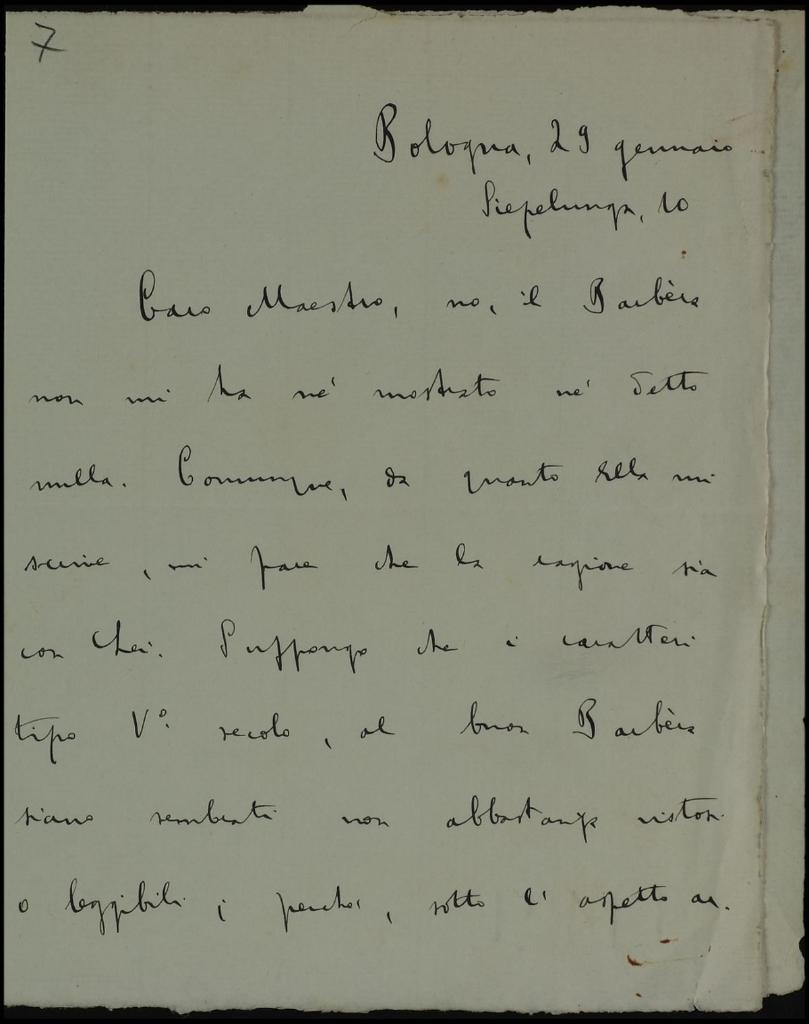 7
Bologna, 29 gennaio
Siepelunga, 10
Caro Maestro, no, il Barbèra
non mi ha nè mostrato nè detto
nulla. Comunque, da quanto Ella mi
scrive, mi pare che la ragione sia
con Lei. Suppongo che i caratteri
tipo V° secolo, al buon Barbèra
siano sembrati non abbastanza vistosi
o leggibili; perchè, sotto l'aspetto ar.